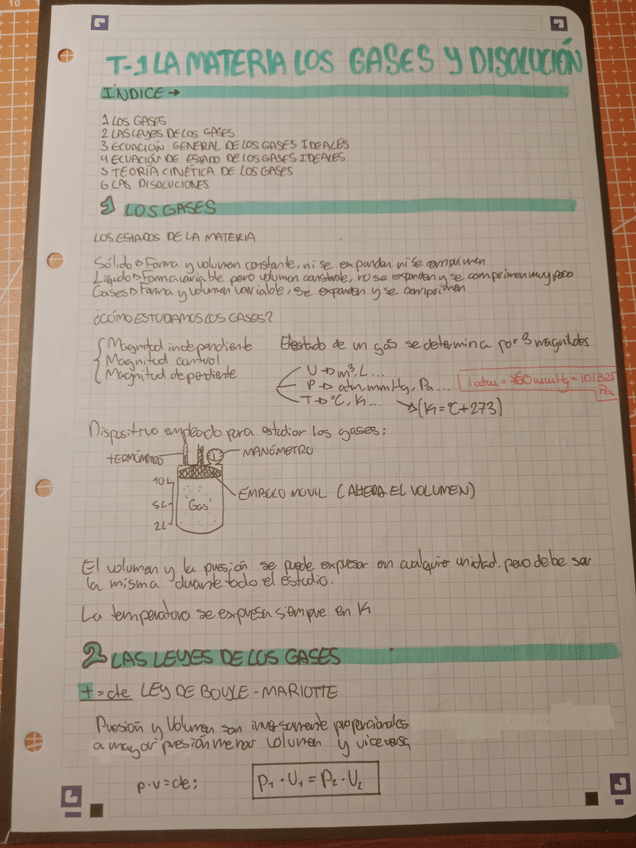 10
T-1 LA MATERIA LOS GASES Y DISOLUCIÓN
ÍNDICE →
1 LOS GASES
2 LAS LEYES DE LOS GASES
3 ECUACIÓN GENERAL DE LOS GASES IDEALES
4 ECUACIÓN DE ESTADO DE LOS GASES IDEALES
5 TEORÍA CINÉTICA DE LOS GASES
6 LAS DISOLUCIONES
1 LOS GASES
LOS ESTADOS DE LA MATERIA
Sólido → Forma y volumen constante, ni se expanden ni se comprimen
Líquido → Forma variable pero volumen constante, no se expanden y se comprimen muy poco
Gases → Forma y volumen variable, se expanden y se comprimen
¿CÓMO ESTUDIAMOS LOS GASES?
Magnitud independiente
Magnitud control
Magnitud dependiente
El estado de un gas se determina por 3 magnitudes
V → m³, L...
P → atm, mmHg, Pa...
T → °C, K...
(K = °C + 273)
1 atm = 760 mmHg = 101325
Pa
Dispositivo empleado para estudiar los gases:
TERMÓMETRO
MANÓMETRO
EMBOLO MOVIL (ALTERA EL VOLUMEN)
10L
5L
2L
Gas
El volumen y la presión se puede expresar en cualquier unidad. pero debe ser
la misma durante todo el estudio.
La temperatura se expresa siempre en K
2 LAS LEYES DE LOS GASES
t = cte LEY DE BOYLE - MARIOTTE
Presión y Volumen son inversamente proporcionales
a mayor presión menor volumen y viceversa
p·v = cte;
P₁ · V₁ = P₂ · V₂